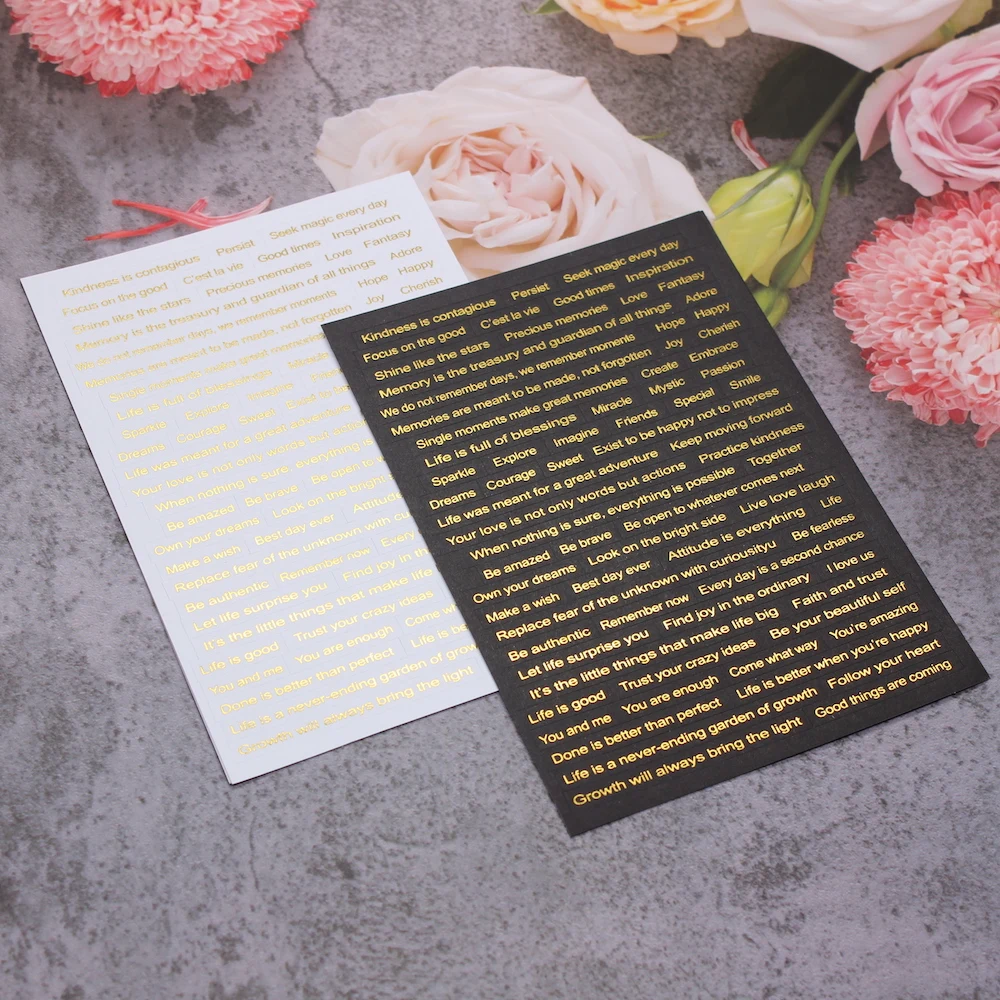 Kindness is contagious Persist Seek magic every day
Focus on the good C'est la vie Good times Inspiration
Shine like the stars Precious memories Love Fantasy
Memory is the treasury and guardian of all things Adore
We do not remember days, we remember moments Hope Happy
Memories are meant to be made, not forgotten Joy Cherish
Single moments make great memories
Life is full of blessings
Sparkle Explore
Dreams Courage Sweet
Life was meant for a great adventure
Your love is not only words but
When nothing is sure, everything is
Be amazed Be brave Be open to
Own your dreams Look on the bright
Make a wish Best day ever Attitude
Replace fear of the unknown with
Be authentic Remember now Every
Let life surprise you Find joy in
It's the little things that make life
Life is good Trust your crazy ideas
You and me You are enough Come
Done is better than perfect Life is
Life is a never-ending garden of
Growth will always bring the light
Kindness is contagious Persist Seek magic every day
Focus on the good C'est la vie Good times Inspiration
Shine like the stars Precious memories Love Fantasy
Memory is the treasury and guardian of all things Adore
We do not remember days, we remember moments Hope Happy
Memories are meant to be made, not forgotten Joy Cherish
Single moments make great memories Create Embrace
Life is full of blessings Miracle Mystic Passion
Sparkle Explore Imagine Friends Special Smile
Dreams Courage Sweet Exist to be happy not to impress
Life was meant for a great adventure Keep moving forward
Your love is not only words but actions Practice kindness
When nothing is sure, everything is possible Together
Be amazed Be brave Be open to whatever comes next
Own your dreams Look on the bright side Live love laugh
Make a wish Best day ever Attitude is everything Life
Replace fear of the unknown with curiousityu Be fearless
Be authentic Remember now Every day is a second chance
Let life surprise you Find joy in the ordinary I love us
It's the little things that make life big Faith and trust
Life is good Trust your crazy ideas Be your beautiful self
You and me You are enough Come what way You're amazing
Done is better than perfect Life is better when you're happy
Life is a never-ending garden of growth Follow your heart
Growth will always bring the light Good things are coming